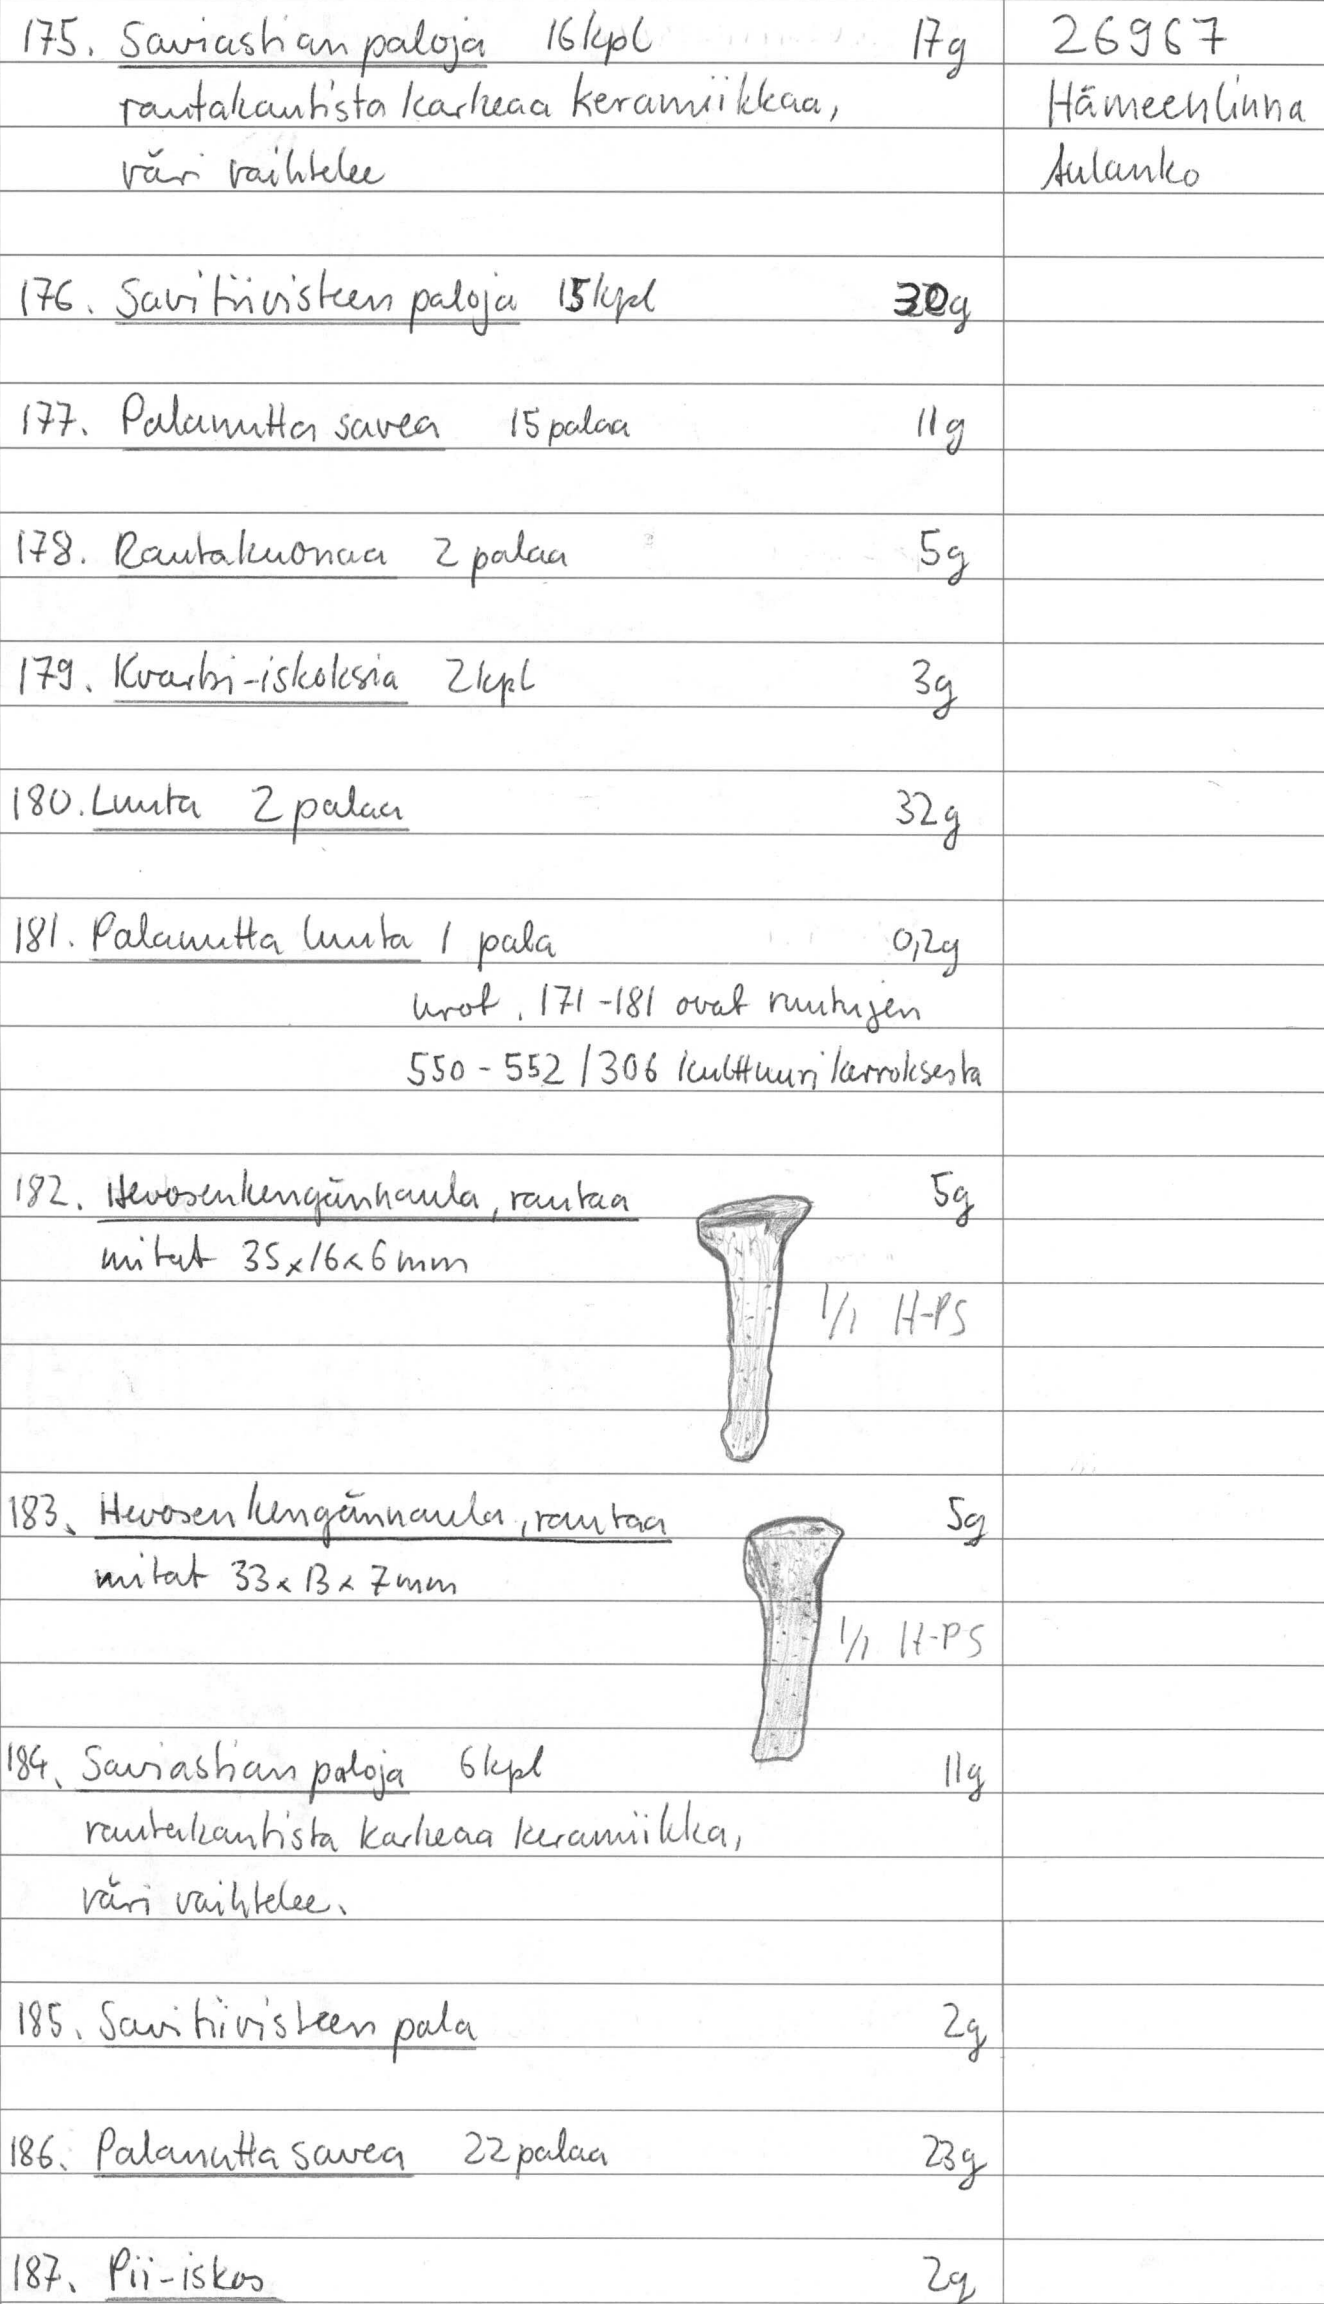 175. Saviastian paloja 16kpl 17g 26967
rautakautista karkeaa keramiikkaa, Hämeenlinna
väri vaihtelee Aulanko
176. Savitiivisteen paloja 15kpl 30g
177. Palanutta savea 15 palaa 11g
178. Rautakuonaa 2 palaa 5g
179. Kvartsi-iskoksia 2kpl 3g
180. Luuta 2 palaa 32g
181. Palanutta luuta 1 pala 0,2g
nrot. 171-181 ovat ruutujen
550-552/306 kulttuurikerroksesta
182. Hevosenkengännaula, rautaa 5g
mitat 35x16x6mm
1/1 H-PS
183. Hevosenkengännaula, rautaa 5g
mitat 33x13x7mm
1/1 H-PS
184. Saviastian paloja 6kpl 11g
rautakautista karkeaa keramiikka,
väri vaihtelee.
185. Savitiivisteen pala 2g
186. Palanutta savea 22 palaa 23g
187. Pii-iskos 2g